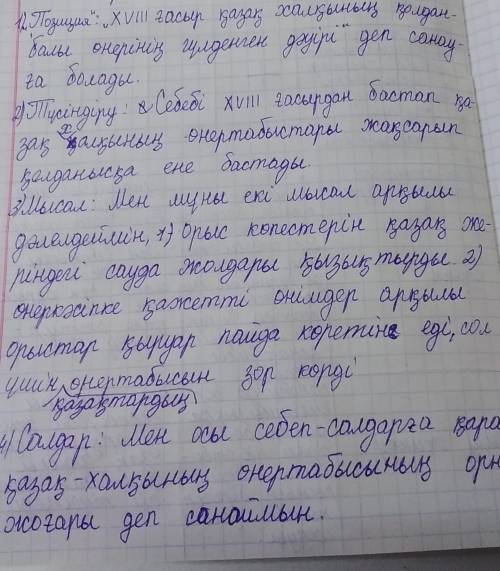 1) „Позиция“: „XVIII ғасыр қазақ халқының қолдан-
балы өнерінің гүлденген дәуірі“ деп санау-
ға болады.
2) Түсіндіру: Себебі XVIII ғасырдан бастап қа-
зақ халқының өнертабыстары жақсарып
қолданысқа ене бастады.
3) Мысал: Мен мұны екі мысал арқылы
дәлелдеймін, 1) орыс көпестерін қазақ же-
ріндегі сауда жолдары қызықтырды. 2)
өнеркәсіпке қажетті өнімдер арқылы
орыстар қыруар пайда көретін еді, сол
үшін өнертабысын зор көрді
қазақтардың
4) Салдар: Мен осы себеп-салдарға қара
қазақ-халқының өнертабысының орн
жоғары деп санаймын.